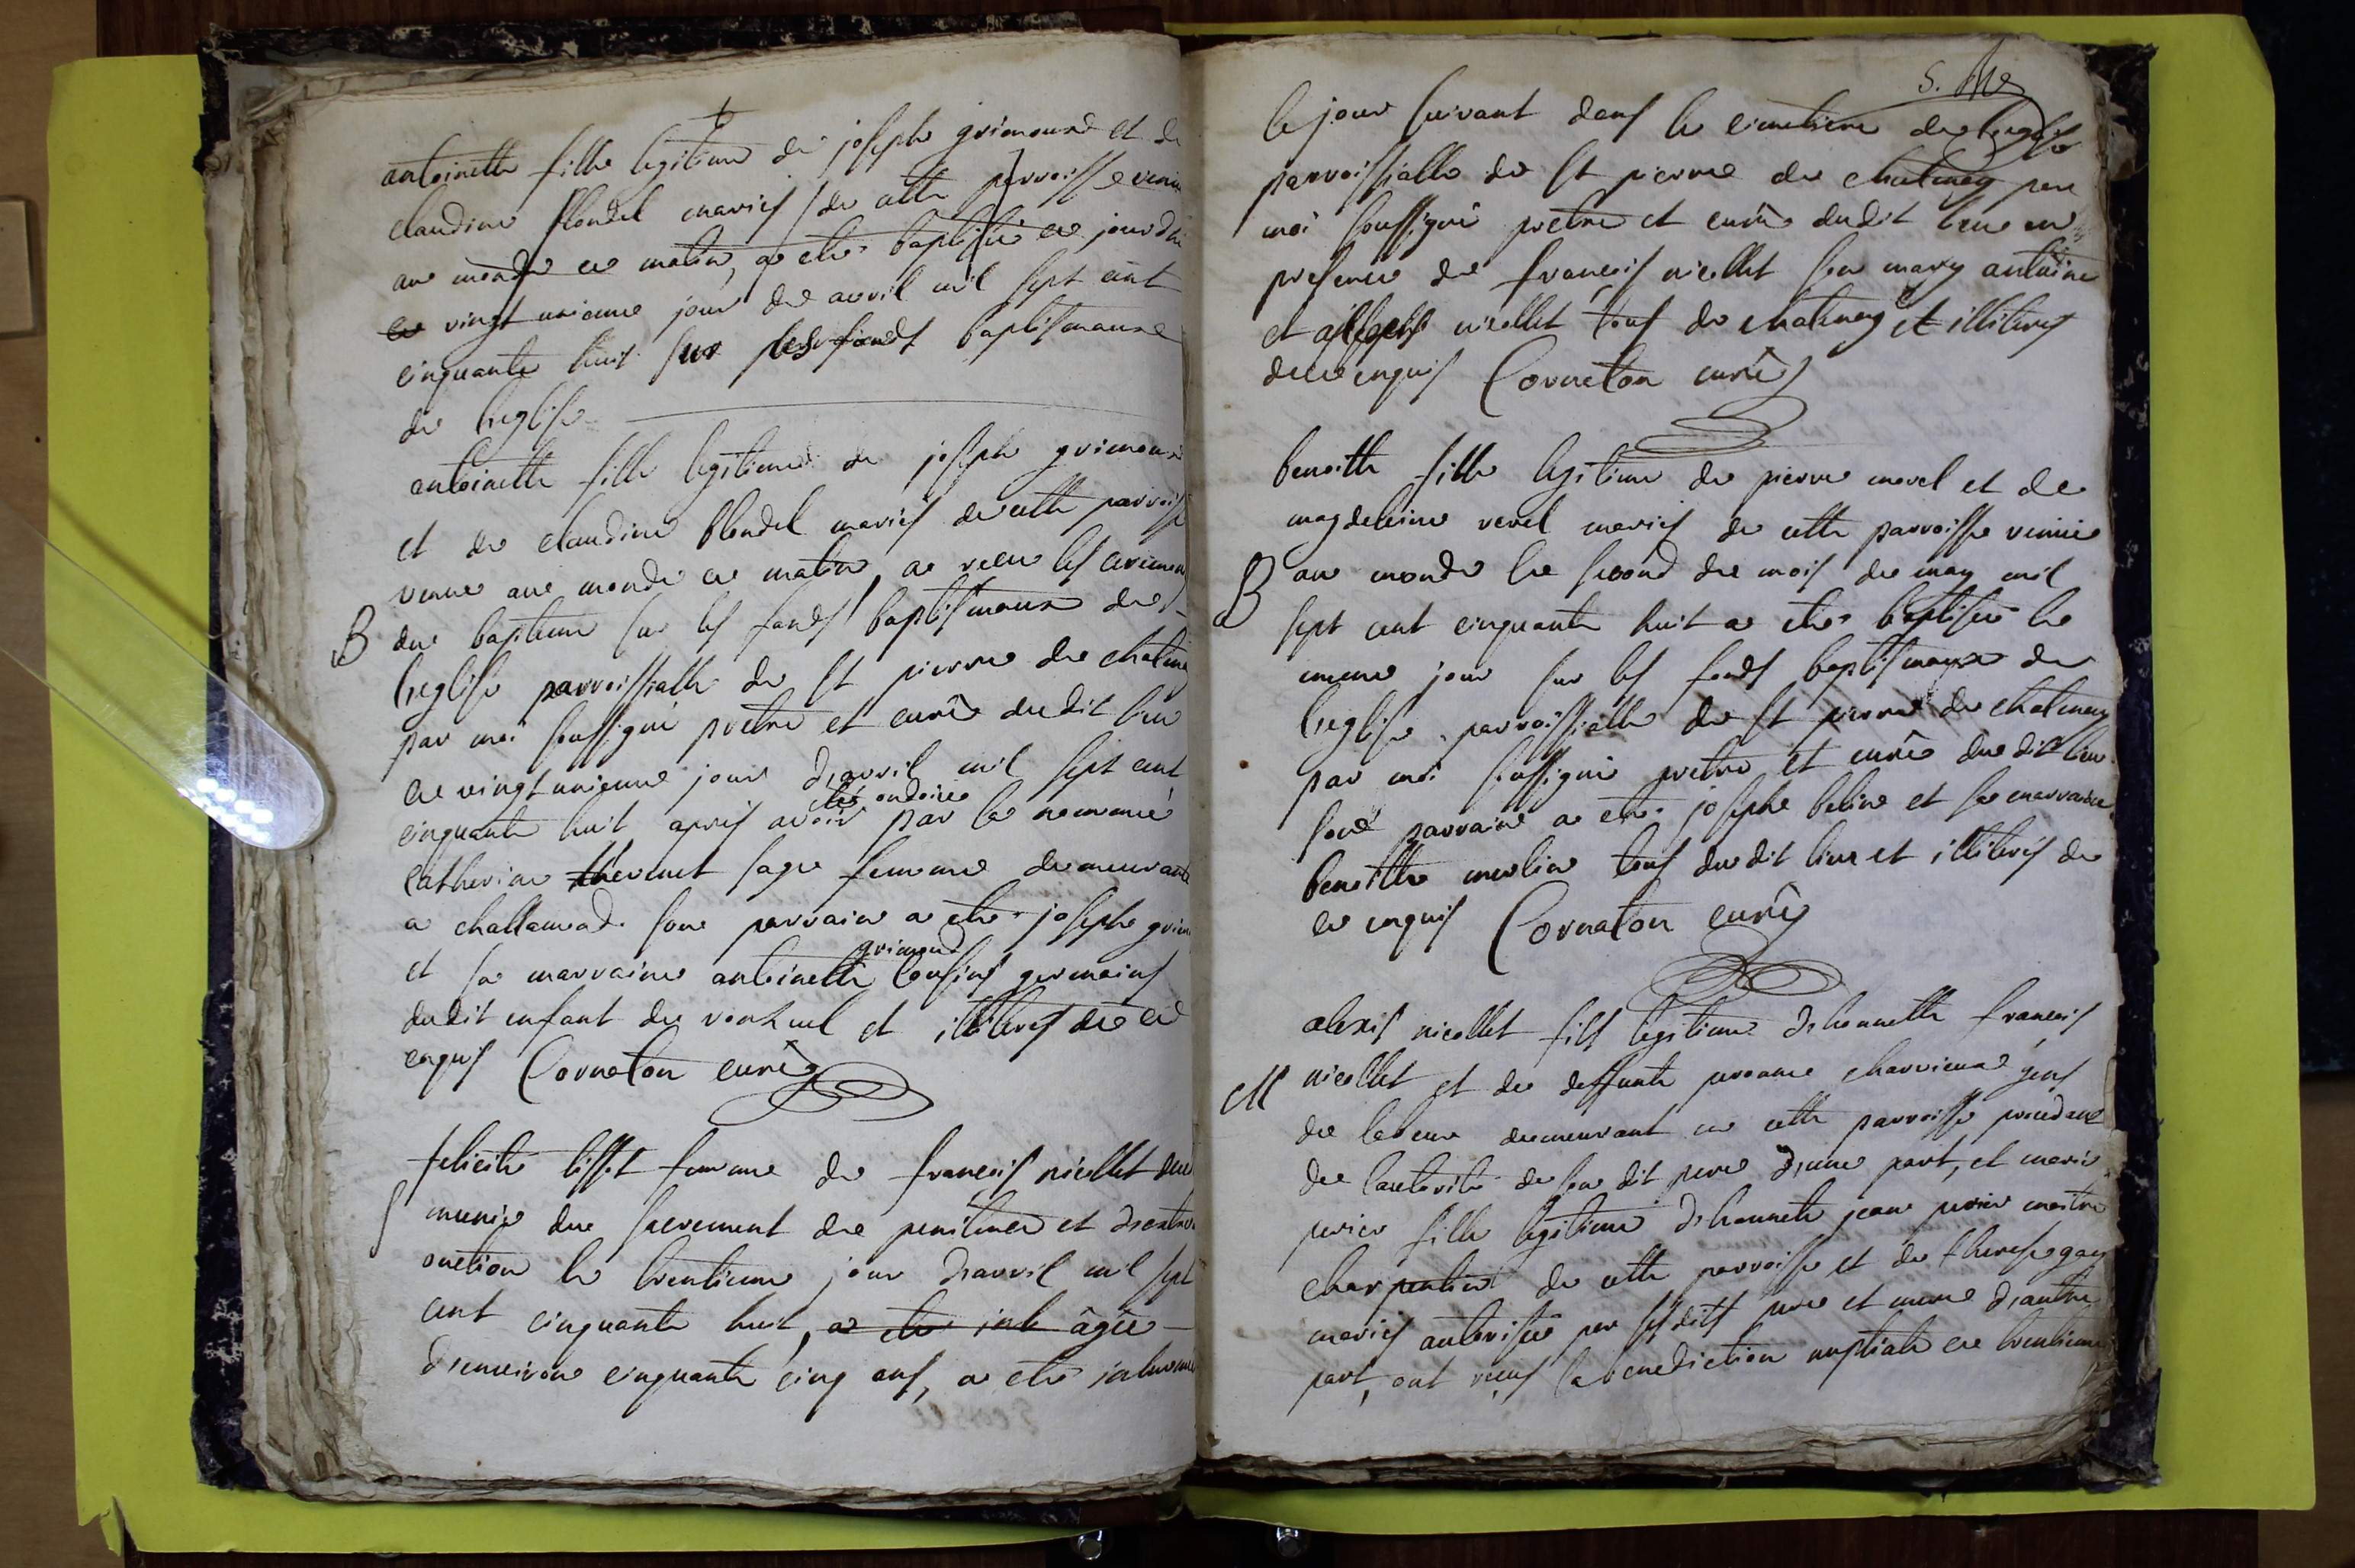 antoinette fille legitime de joseph grimound et de
claudine blondel mariés de cette parroisse venue
au monde ce matin, a eté baptisée ce jourd'hui
ce vingt unieme jour de avril mil sept cent
cinquante huit sur les fonds baptismaux
de l'eglise
antoinette fille legitime de joseph grimound
et de claudine blondel mariés de cette parroisse
venue au monde ce matin, a receu les ceremonies
B
du bapteme sur les fonds baptismaux de
l'eglise parroissialle de st pierre de chatenay
par moi soussigné pretre et curé dudit lieu
ce vingt unieme jour d'avril mil sept cent
eté ondoiée
cinquante huit apris avoir par la nommée
catherine thevenet sage femme demeurante
a challamond. son parrain a eté joseph
grimond
et sa marraine antoinette cousins germains
dudit enfant de et illiterés de ce
enquis Cornaton curé
felicité bisset femme de françois nicollet
S
munie du sacrement de penitence et d'extreme
onction le trentieme jour d'avril mil sept
cent cinquante huit, a eté inh âgée
d'environ cinquante cinq ans, a eté inhumée
le jour suivant dans le cimetiere de l'eglise
parroissialle de st pierre de chatenay par
moi soussigné pretre et curé dudit lieu en
presence de françois nicollet son mary antoine
et nicollet tous de chatenay et illiterés
de ce enquis Cornaton curé
benoitte fille legitime de pierre morel et de
magdeleine revel mariés de cette parroisse venüe
B
au monde le second de mois de may mil
sept cent cinquante huit a eté baptisée le
meme jour sur les fonds baptismaux de
l'eglise parroissialle de st pierre de chatenay
par moi soussigné pretre et curé du dit lieu
son parrain a eté joseph belin et sa marraine
benoitte merlin tous du dit lieu et illiterés de
ce enquis Cornaton curé
alexis nicollet fils legitime d'honnette françois
M
nicollet et de deffunte charvieux gens
de labeur demeurant en cette parroisse procedant
de l'autorité de son dit pere d'une part, et marie
perier fille legitime d'honnete jean perier maitre
charpentier de cette parroisse et de therese gay
mariés autorisée par sesdits pere et mere d'autre
part, ont receus la benediction nuptiale ce trentieme